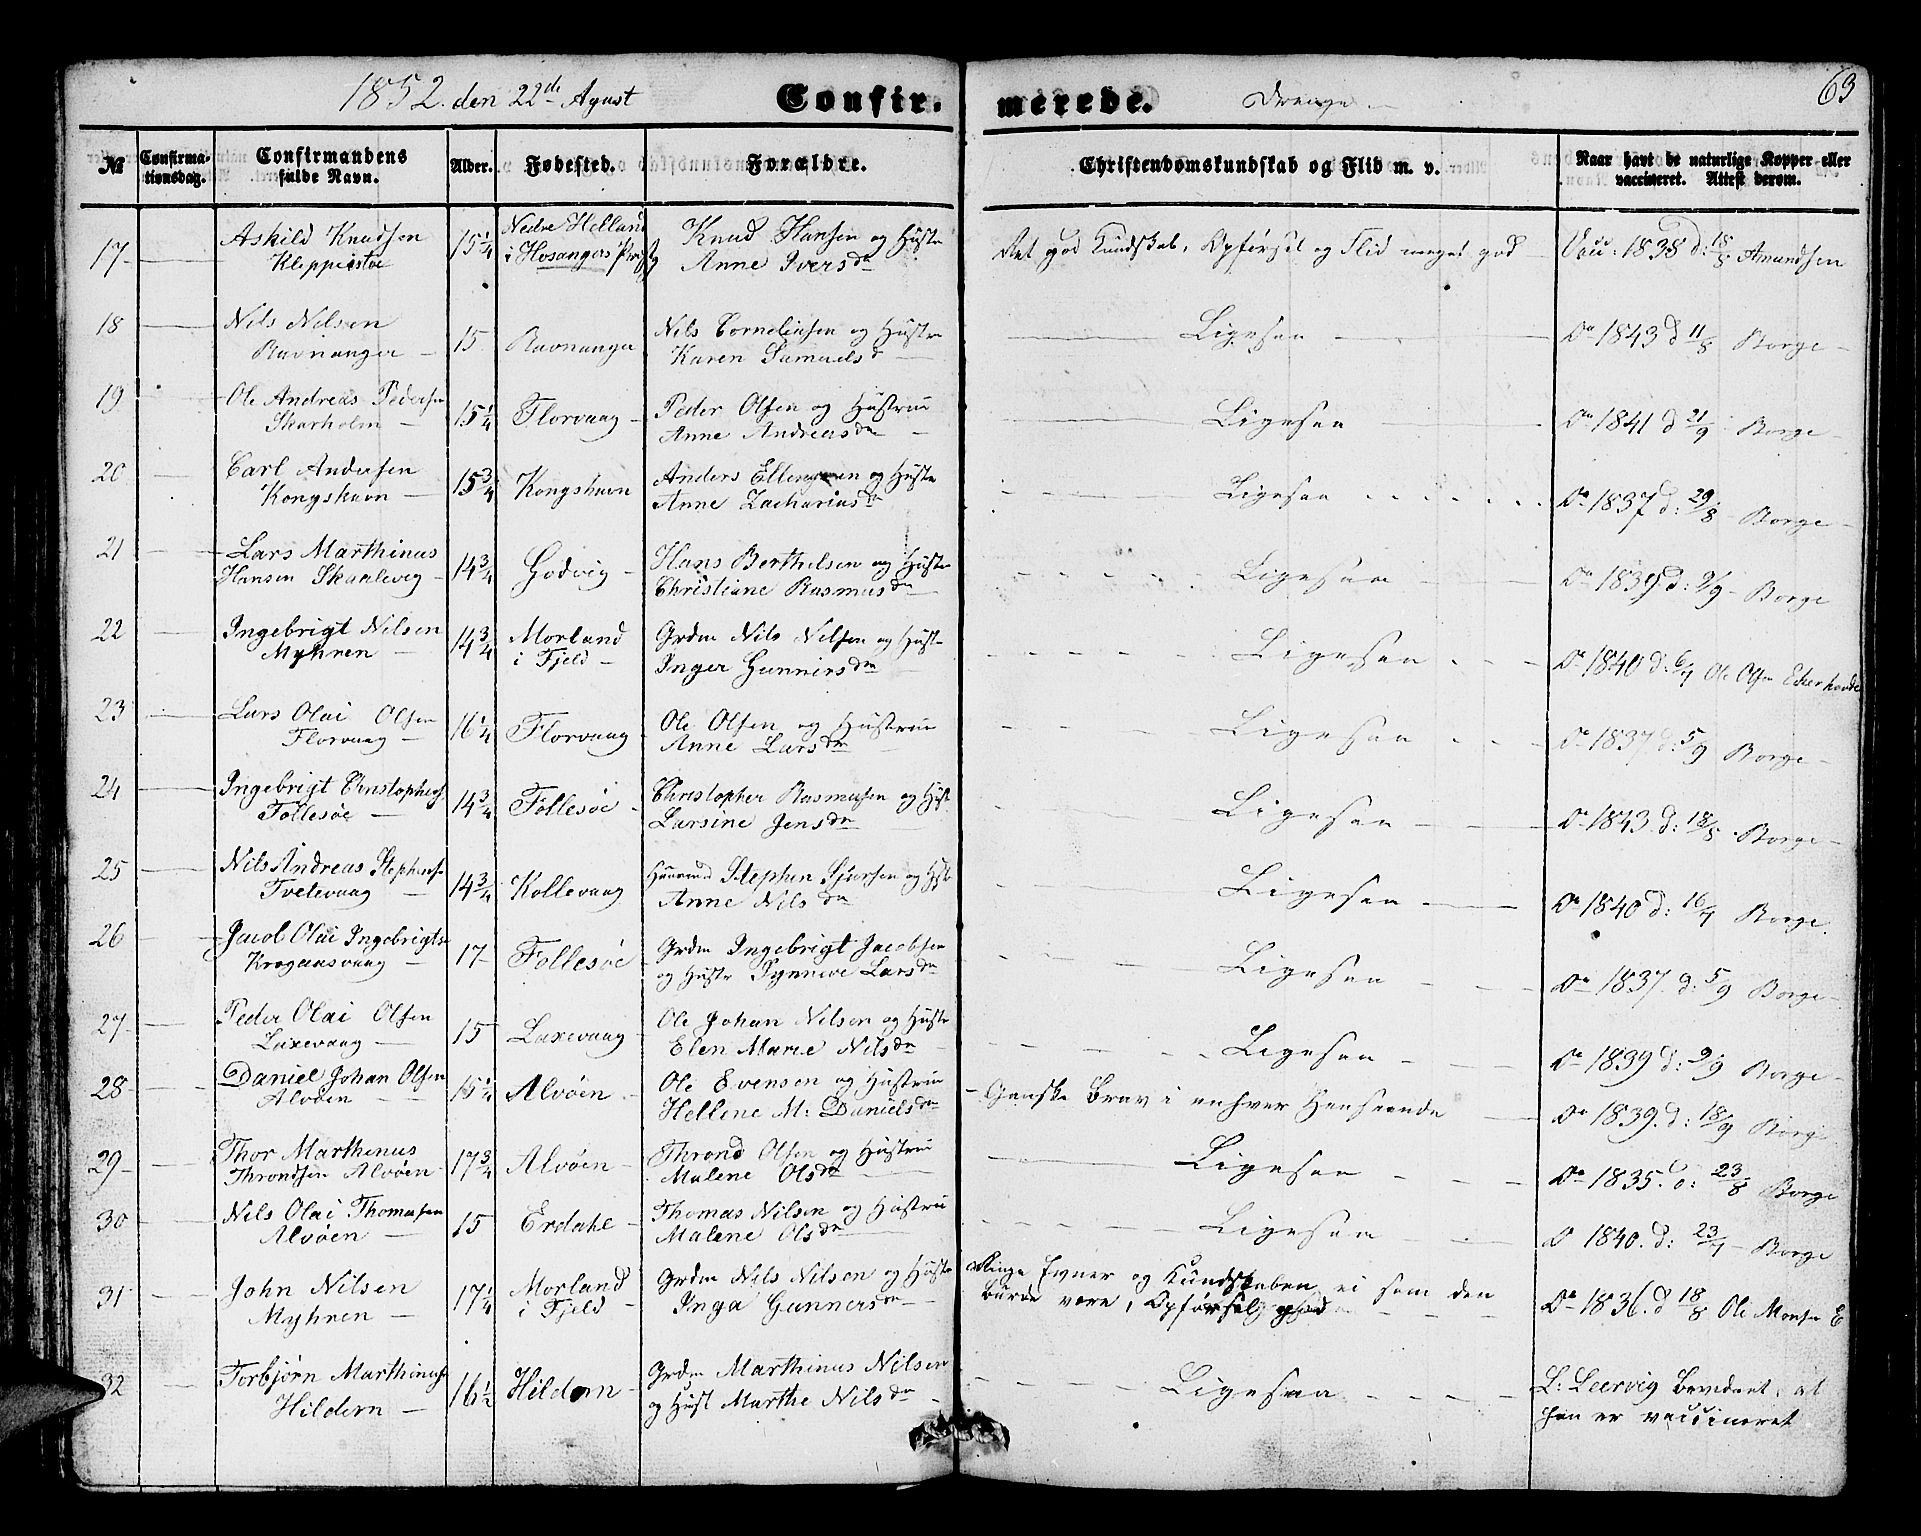 1852. den 22de Agust
Confirmerede.
Drenge
63
№
Confirmationsdag.
Confirmandens fulde Navn.
Alder.
Fødested.
Forældre.
Christendomskundskab og Flid m. v.
Naar havt de naturlige Kopper eller vaccineret. Attest derom.
17 Askild Knudsen 15 1/4 Nedre Helland Knud Hansen og Hustr Ret god Kundskab, Opførsel og Flid meget god Vacc: 1838 d: 18/8 Amundsen
Kleppestøe i Hosangers Anne Iversdr
18 Nils Nilsen 15 Ravnanger Nils Corneliusen og Hustr Ligesaa Do 1843 d 11/8 Borge
Ravnanger Karen Samuelsd
19 Ole Andreas Pedersen 15 1/4 Florvaag Peder Olsen og Hustrue Ligesaa Do 1841 d 21/9 Borge
Skarholm Anne Andreasdr
20 Carl Andersen 15 3/4 Kongshavn Anders og Hustr Ligesaa Do 1837 d: 29/8 Borge
Kongshavn Anne Zachariasdr
21 Lars Marthinus 14 3/4 Godvig Hans Berthelsen og Hustr Ligesaa Do 1839 d: 9/9 Borge
Hansen Skaalevig Christiane Rasmusdr
22 Ingebrigt Nilsen 14 3/4 Morland Grdm Nils Nilsen og Hust Ligesaa Do 1840 d: 6/7 Ole Olsen
Myhren i Fjeld Inger Gunnirsdr
23 Lars Olai Olsen 16 1/4 Florvaag Ole Olsen og Hustrue Ligesaa Do 1837 d: 5/9 Borge
Florvaag Anne Larsdr
24 Ingebrigt Christophers 14 3/4 Follesøe Christopher Rasmusen og Hust Ligesaa Do 1843. d: 18/8 Borge
Follesøe Larsine Jensdr
25 Nils Andreas Stephens 14 3/4 Kollevaag Huusmd Stephen Sjursen og Hst Ligesaa Do 1840 d: 16/7 Borge
Tveitevaag Anne Nilsdr
26 Jacob Olai Ingebrigts 17 Follesøe Grdm Ingebrigt Jacobsen Ligesaa Do 1837. d: 5/9 Borge
Krogaasvaag og Hustr Synneve Larsdr
27 Peder Olai Olsen 15 Laxevaag Ole Johan Nilsen og Hustr Ligesaa Do 1839 d: 9/9 Borge
Laxevaag Elen Marie Nilsdr
28 Daniel Johan Olsen 15 1/4 Alvøen Ole Evensen og Hustrue Ganske Brav i enhver Henseende Do 1839. d: 18/9 Borge
Alvøen Hellene M: Danielsdr
29 Thor Marthinus 17 3/4 Alvøen Thrond Olsen og Hustrue Ligesaa Do 1835. d: 23/8 Borge
Throndsen Alvøen Malene Olsdr
30 Nils Olai Thomasen 15 Erdahl Thomas Nilsen og Hustrue Ligesaa Do 1840. d: 23/7 Borge
Alvøen Malene Olsdr
31 John Nilsen 17 1/4 Morland Grdm Nils Nilsen og Hustr Ringe Evner og Kundskaben ei som den Do 1836. d 18/8 Ole Monsen E
Myhren i Fjeld Inga Gunnersdr burde være, Opførsel god
32 Torbjørn Marthinus 16 1/2 Hildern Grdm Marthinus Nilsen Ligesaa L: Leervig bevidnet, at
Hildern og Hust Marthe Nilsdr han er vaccineret